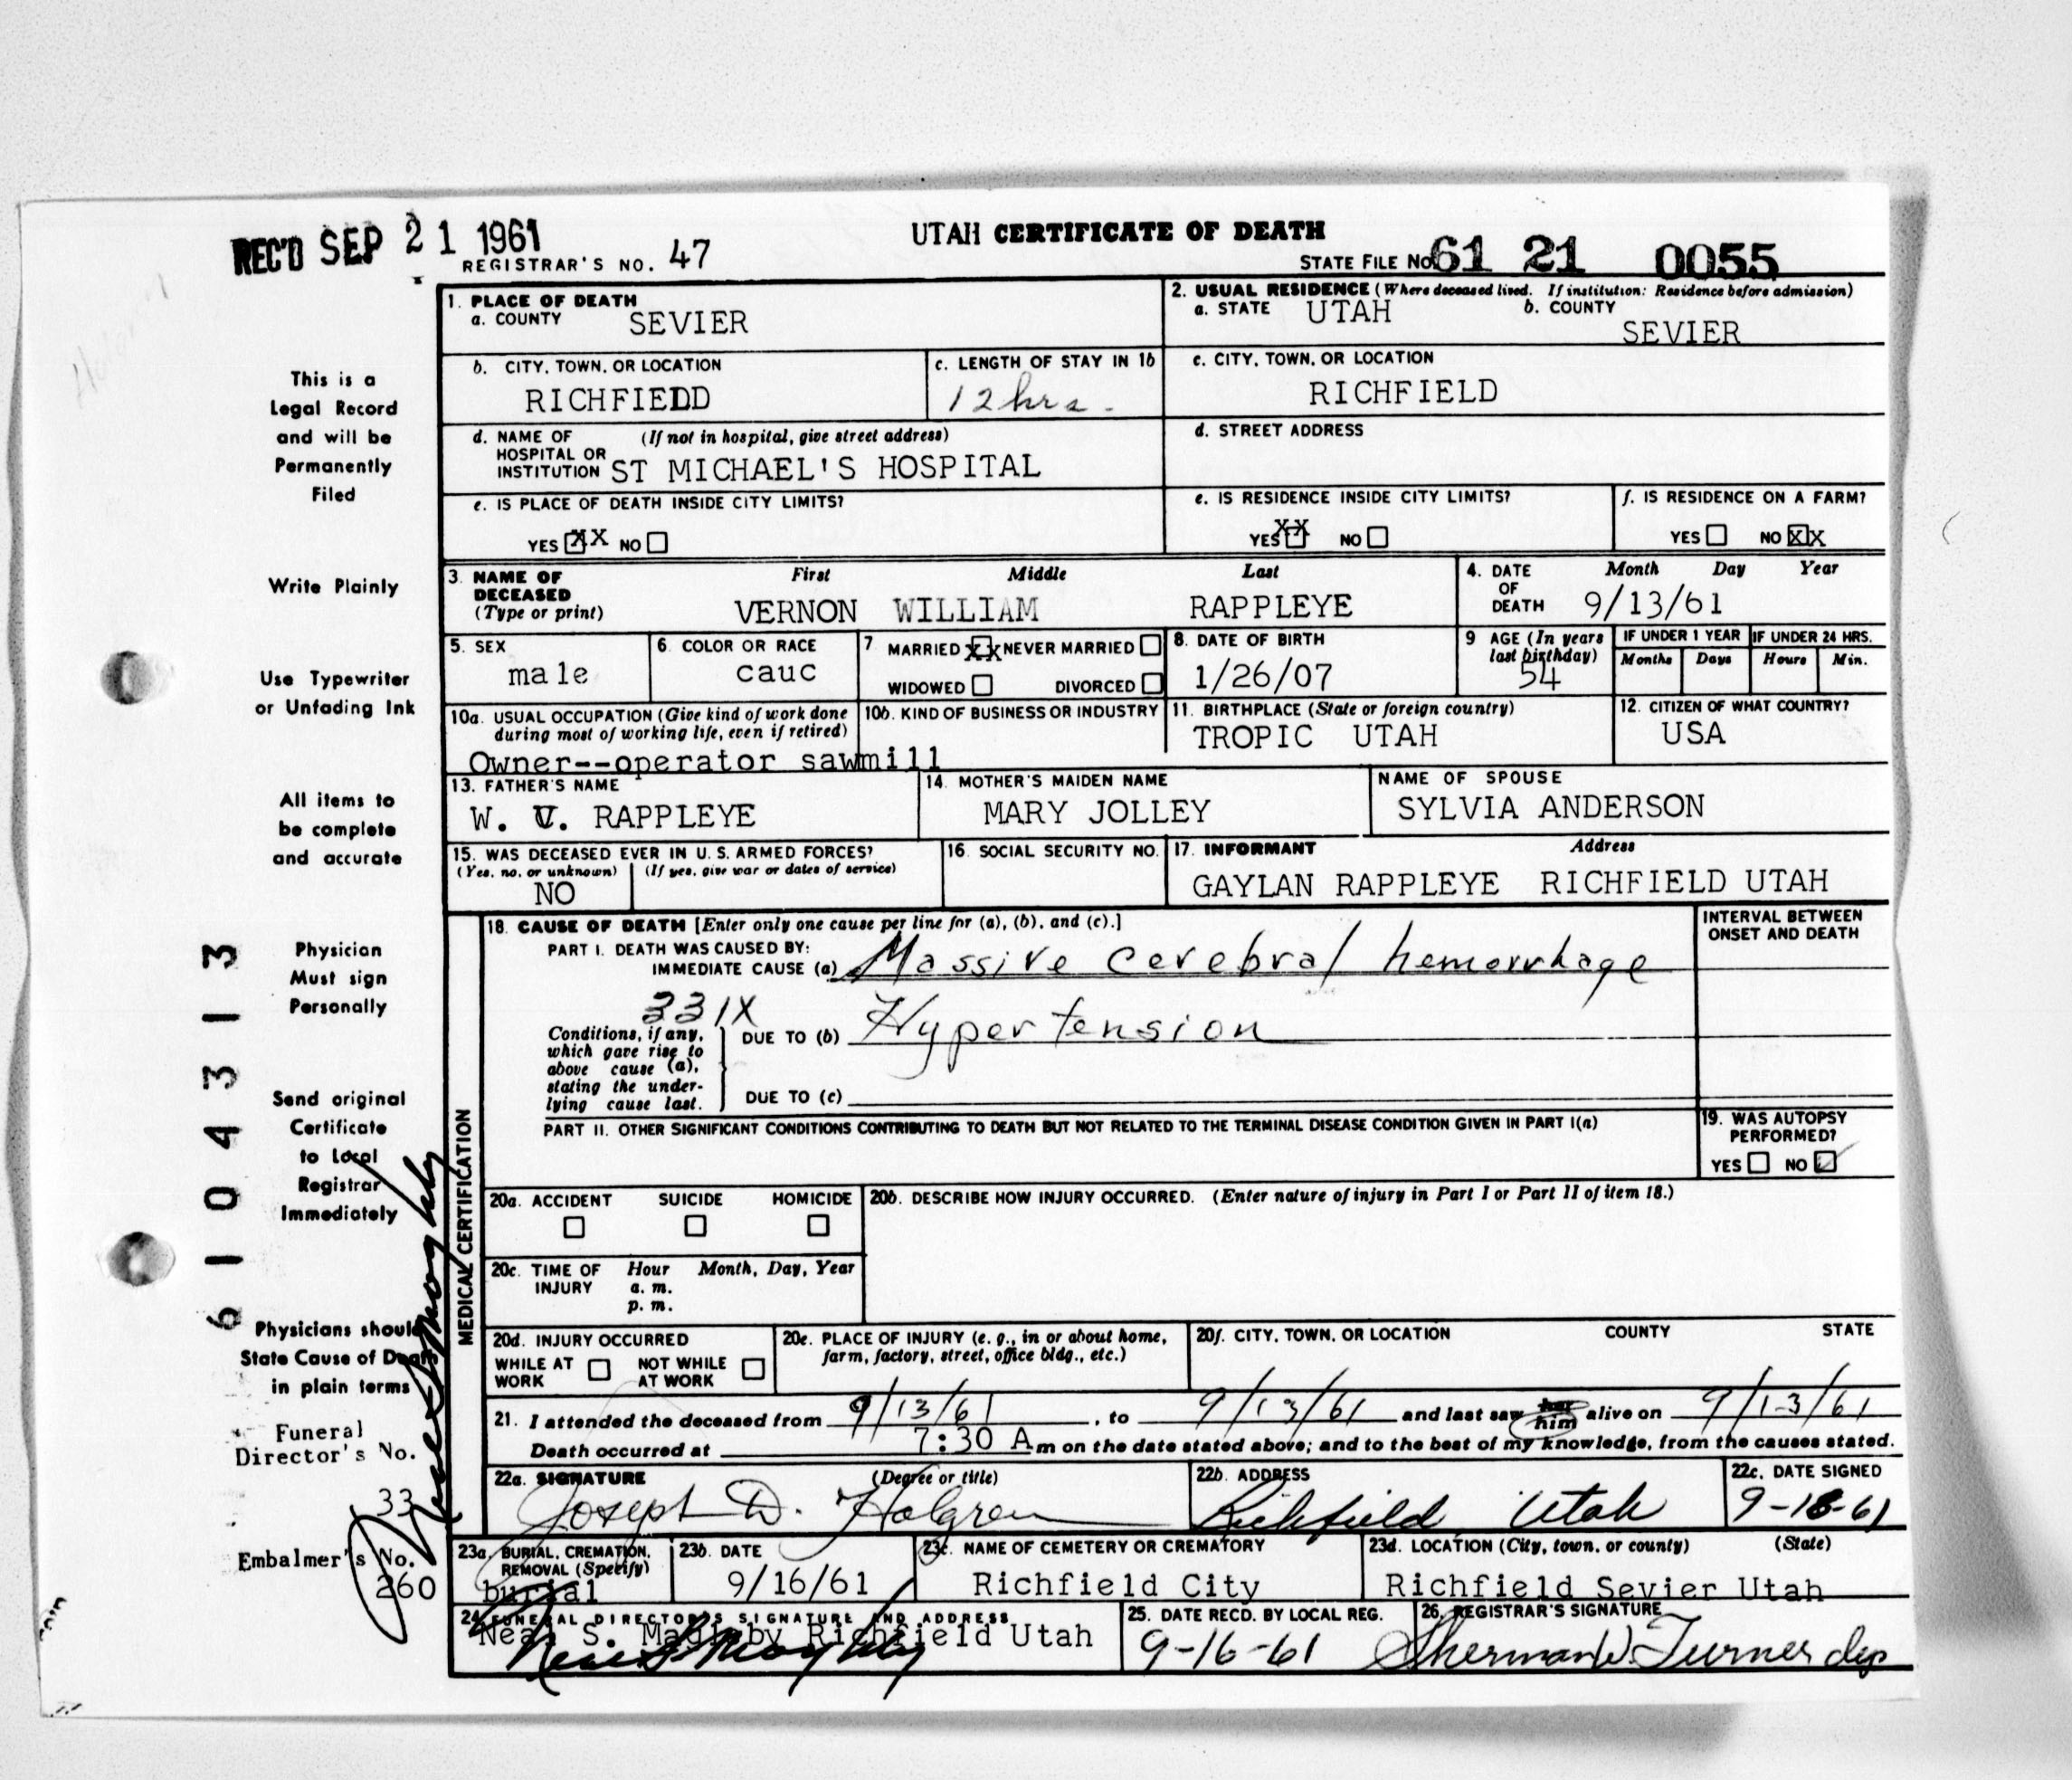 REC'D SEP 21 1961
UTAH CERTIFICATE OF DEATH
REGISTRAR'S NO. 47
STATE FILE NO. 61 21 0055
1. PLACE OF DEATH
a. COUNTY SEVIER
2. USUAL RESIDENCE (Where deceased lived. If institution: Residence before admission)
a. STATE UTAH b. COUNTY
SEVIER
b. CITY, TOWN, OR LOCATION
RICHFIEDD
c. LENGTH OF STAY IN 1b
12 hrs.
c. CITY, TOWN, OR LOCATION
RICHFIELD
d. NAME OF (If not in hospital, give street address)
HOSPITAL OR
INSTITUTION ST MICHAEL'S HOSPITAL
d. STREET ADDRESS
e. IS PLACE OF DEATH INSIDE CITY LIMITS?
YES XX NO
e. IS RESIDENCE INSIDE CITY LIMITS?
YES XX NO
f. IS RESIDENCE ON A FARM?
YES NO XX
3. NAME OF
DECEASED
(Type or print)
First Middle Last
VERNON WILLIAM RAPPLEYE
4. DATE
OF
DEATH
Month Day Year
9/13/61
5. SEX
male
6. COLOR OR RACE
cauc
7 MARRIED XX NEVER MARRIED
WIDOWED DIVORCED
8. DATE OF BIRTH
1/26/07
9 AGE (In years
last birthday)
54
IF UNDER 1 YEAR
Months Days
IF UNDER 24 HRS.
Hours Min.
10a. USUAL OCCUPATION (Give kind of work done
during most of working life, even if retired)
Owner--operator sawmill
10b. KIND OF BUSINESS OR INDUSTRY
11. BIRTHPLACE (State or foreign country)
TROPIC UTAH
12. CITIZEN OF WHAT COUNTRY?
USA
13. FATHER'S NAME
W. V. RAPPLEYE
14. MOTHER'S MAIDEN NAME
MARY JOLLEY
NAME OF SPOUSE
SYLVIA ANDERSON
15. WAS DECEASED EVER IN U. S. ARMED FORCES?
(Yes, no, or unknown) (If yes, give war or dates of service)
NO
16. SOCIAL SECURITY NO.
17. INFORMANT Address
GAYLAN RAPPLEYE RICHFIELD UTAH
18. CAUSE OF DEATH [Enter only one cause per line for (a), (b), and (c).]
PART I. DEATH WAS CAUSED BY:
IMMEDIATE CAUSE (a) Massive cerebral hemorrhage
INTERVAL BETWEEN
ONSET AND DEATH
331X
Conditions, if any,
which gave rise to
above cause (a),
stating the under-
lying cause last.
DUE TO (b) Hypertension
DUE TO (c)
PART II. OTHER SIGNIFICANT CONDITIONS CONTRIBUTING TO DEATH BUT NOT RELATED TO THE TERMINAL DISEASE CONDITION GIVEN IN PART I(a)
19. WAS AUTOPSY
PERFORMED?
YES NO ✓
20a. ACCIDENT SUICIDE HOMICIDE
20b. DESCRIBE HOW INJURY OCCURRED. (Enter nature of injury in Part I or Part II of item 18.)
20c. TIME OF
INJURY
Hour Month, Day, Year
a. m.
p. m.
20d. INJURY OCCURRED
WHILE AT
WORK
NOT WHILE
AT WORK
20e. PLACE OF INJURY (e. g., in or about home,
farm, factory, street, office bldg., etc.)
20f. CITY, TOWN, OR LOCATION COUNTY STATE
21. I attended the deceased from 9/13/61, to 9/13/61 and last saw her him alive on 9/13/61
Death occurred at 7:30 A m on the date stated above; and to the best of my knowledge, from the causes stated.
22a. SIGNATURE (Degree or title)
Joseph D. Holgren
22b. ADDRESS
Richfield Utah
22c. DATE SIGNED
9-16-61
23a. BURIAL, CREMATION,
REMOVAL (Specify)
burial
23b. DATE
9/16/61
23c. NAME OF CEMETERY OR CREMATORY
Richfield City
23d. LOCATION (City, town, or county) (State)
Richfield Sevier Utah
24. FUNERAL DIRECTOR'S SIGNATURE AND ADDRESS
Neal S. Magleby Richfield Utah
Neal S. Magleby
25. DATE RECD. BY LOCAL REG.
9-16-61
26. REGISTRAR'S SIGNATURE
Sherman W. Turner dep
MEDICAL CERTIFICATION
This is a
Legal Record
and will be
Permanently
Filed
Write Plainly
Use Typewriter
or Unfading Ink
All items to
be complete
and accurate
Physician
Must sign
Personally
Send original
Certificate
to Local
Registrar
Immediately
Physicians should
State Cause of Death
in plain terms
Funeral
Director's No.
33
Embalmer's No.
260
Neal S. Magleby
6104313